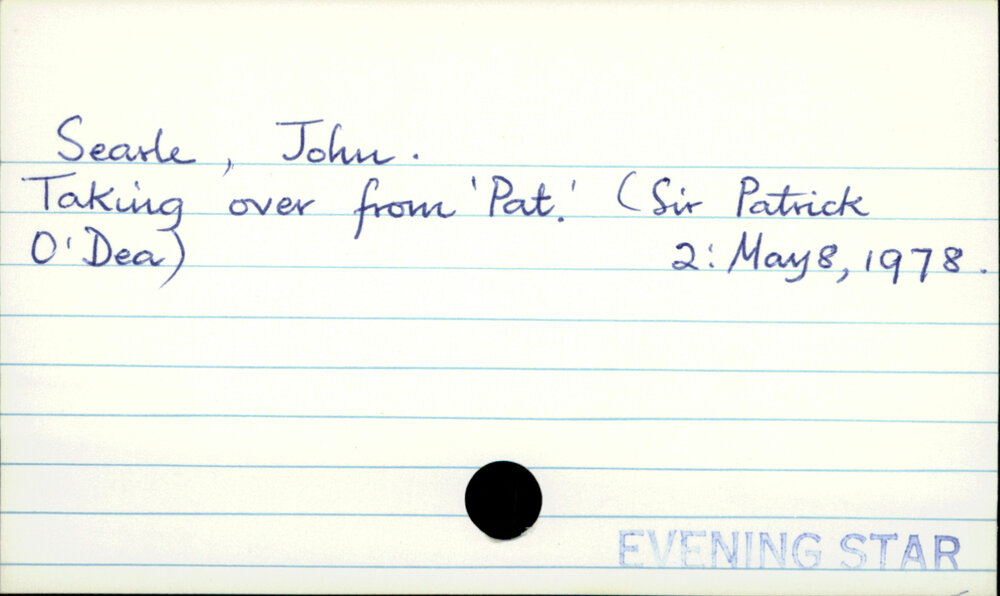 Searle, John.
Taking over from 'Pat.' (Sir Patrick
O'Dea) 2: May 8, 1978.
EVENING STAR